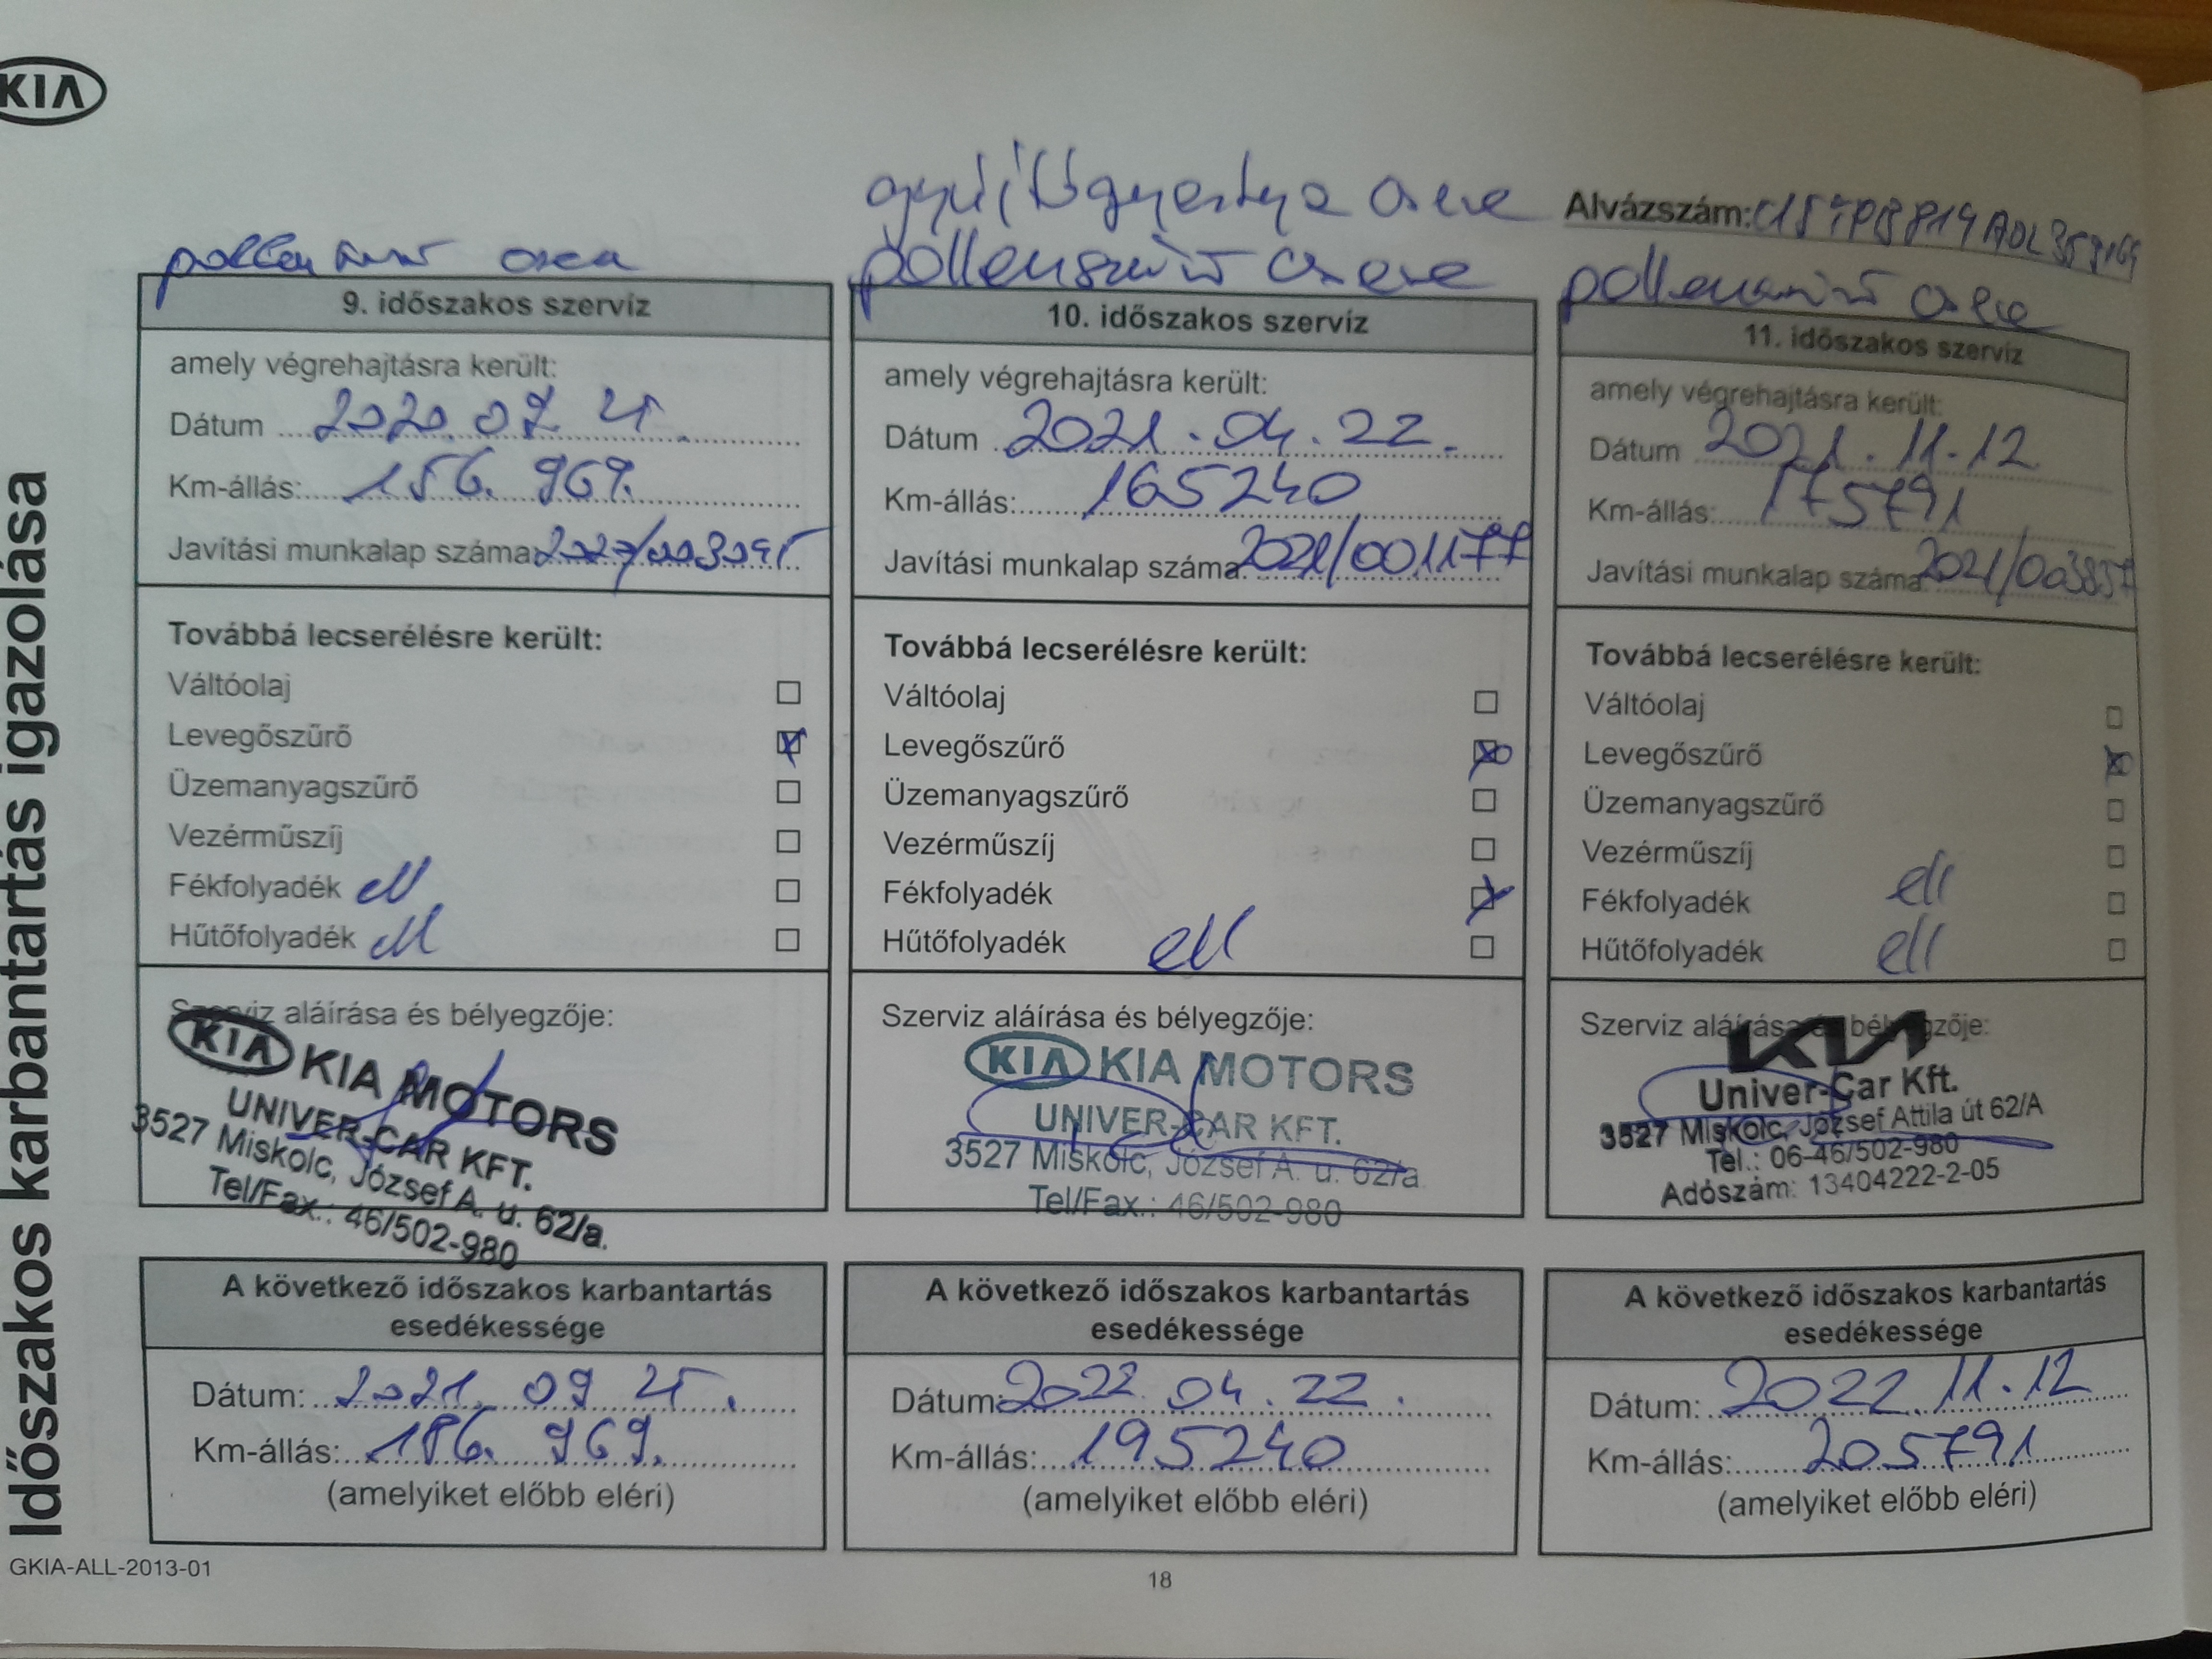 KIA
Időszakos karbantartás igazolása
Alvázszám:
pollenszűrő csere
9. időszakos szervíz
amely végrehajtásra került:
Dátum 2020. 09. 25.
Km-állás: 156. 969.
Javítási munkalap száma:
Továbbá lecserélésre került:
Váltóolaj
Levegőszűrő
Üzemanyagszűrő
Vezérműszíj
Fékfolyadék ell
Hűtőfolyadék ell
Szerviz aláírása és bélyegzője:
KIA KIA MOTORS
UNIVER-CAR KFT.
3527 Miskolc, József A. u. 62/a.
Tel/Fax.: 46/502-980
A következő időszakos karbantartás
esedékessége
Dátum: 2021. 09 25.
Km-állás: 186. 969.
(amelyiket előbb eléri)
gyújtógyertya csere
pollenszűrő csere
10. időszakos szervíz
amely végrehajtásra került:
Dátum 2021. 04. 22.
Km-állás: 165240
Javítási munkalap száma: 2021/001177
Továbbá lecserélésre került:
Váltóolaj
Levegőszűrő
Üzemanyagszűrő
Vezérműszíj
Fékfolyadék
Hűtőfolyadék ell
Szerviz aláírása és bélyegzője:
KIA KIA MOTORS
UNIVER-CAR KFT.
3527 Miskolc, József A. u. 62/a
Tel/Fax.: 46/502-980
A következő időszakos karbantartás
esedékessége
Dátum: 2022. 04. 22.
Km-állás: 195240
(amelyiket előbb eléri)
pollenszűrő csere
11. időszakos szervíz
amely végrehajtásra került:
Dátum 2021. 11. 12
Km-állás: 175791
Javítási munkalap száma 2021/003857
Továbbá lecserélésre került:
Váltóolaj
Levegőszűrő
Üzemanyagszűrő
Vezérműszíj
Fékfolyadék ell
Hűtőfolyadék ell
Szerviz aláírása és bélyegzője:
KIA
Univer-Car Kft.
3527 Miskolc, József Attila út 62/A
Tel.: 06-46/502-980
Adószám: 13404222-2-05
A következő időszakos karbantartás
esedékessége
Dátum: 2022. 11. 12
Km-állás: 205791
(amelyiket előbb eléri)
GKIA-ALL-2013-01
18